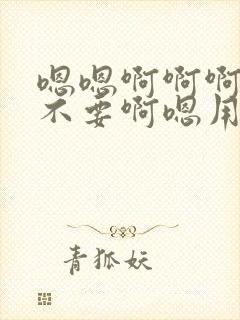 嗯嗯啊啊啊
不要啊嗯用
青狐妖